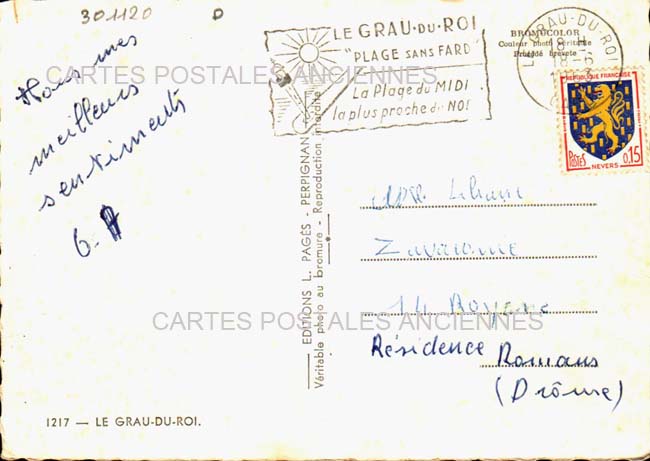 301120
D
LE GRAU-DU-ROI
"PLAGE SANS FARD"
La Plage du MIDI
la plus proche du NO!
BROMOCOLOR
Couleur photo véritable
Procédé breveté
GRAU-DU-ROI
RÉPUBLIQUE FRANÇAISE
POSTES
NEVERS
0,15
CARTES POSTALES ANCIENNES
meilleurs
sentiments
G.
EDITIONS L. PAGÈS - PERPIGNAN
Véritable photo au bromure - Reproduction interdite
Liliane
14 Royans
CARTES POSTALES ANCIENNES
Résidence Romans
(Drôme)
1217 — LE GRAU-DU-ROI.